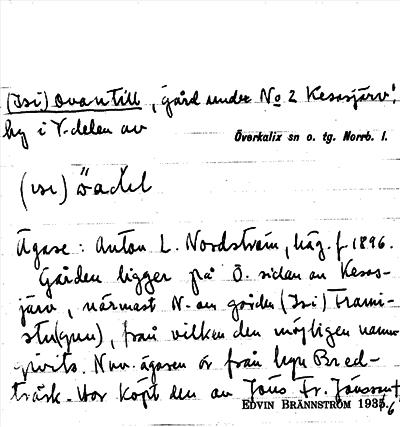 (Isi) Ovantill, gård under No 2 Kesasjärv,
by i V-delen av
Överkalix sn o. tg. Norrb. l.
Ägare: Anton L. Nordström, häg. f. 1896.
Gården ligger på Ö. sidan av Kesas-
järv, närmast N. om gården (Isi) Frami-
stu(gun), från vilken den möjligen namn-
givits. Nuv. ägaren är från byn Bred-
träsk. Har köpt den av Jöns Fr. Jönsson
EDVIN BRÄNNSTRÖM 193